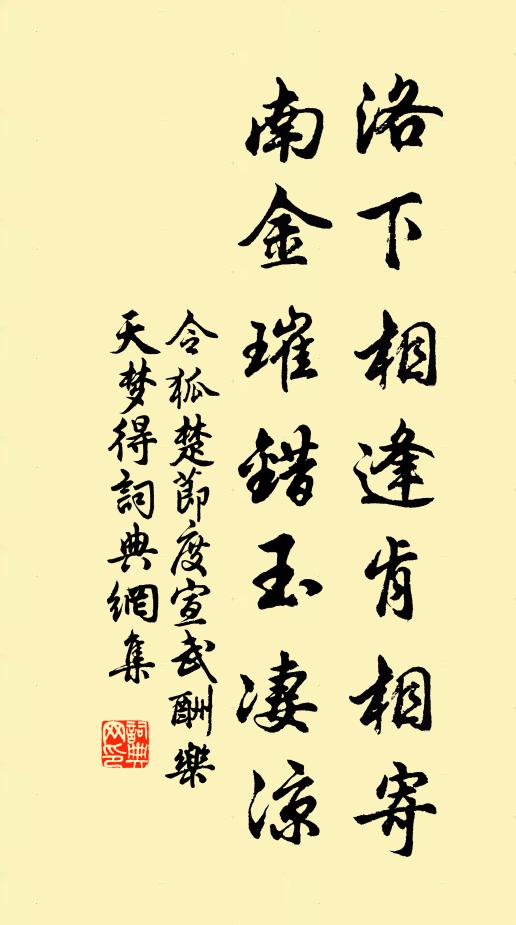 洛下相逢肯相寄
南金璀錯玉淒涼
令狐楚節度宣武酬樂
天梦得詞典網集
詞典网印